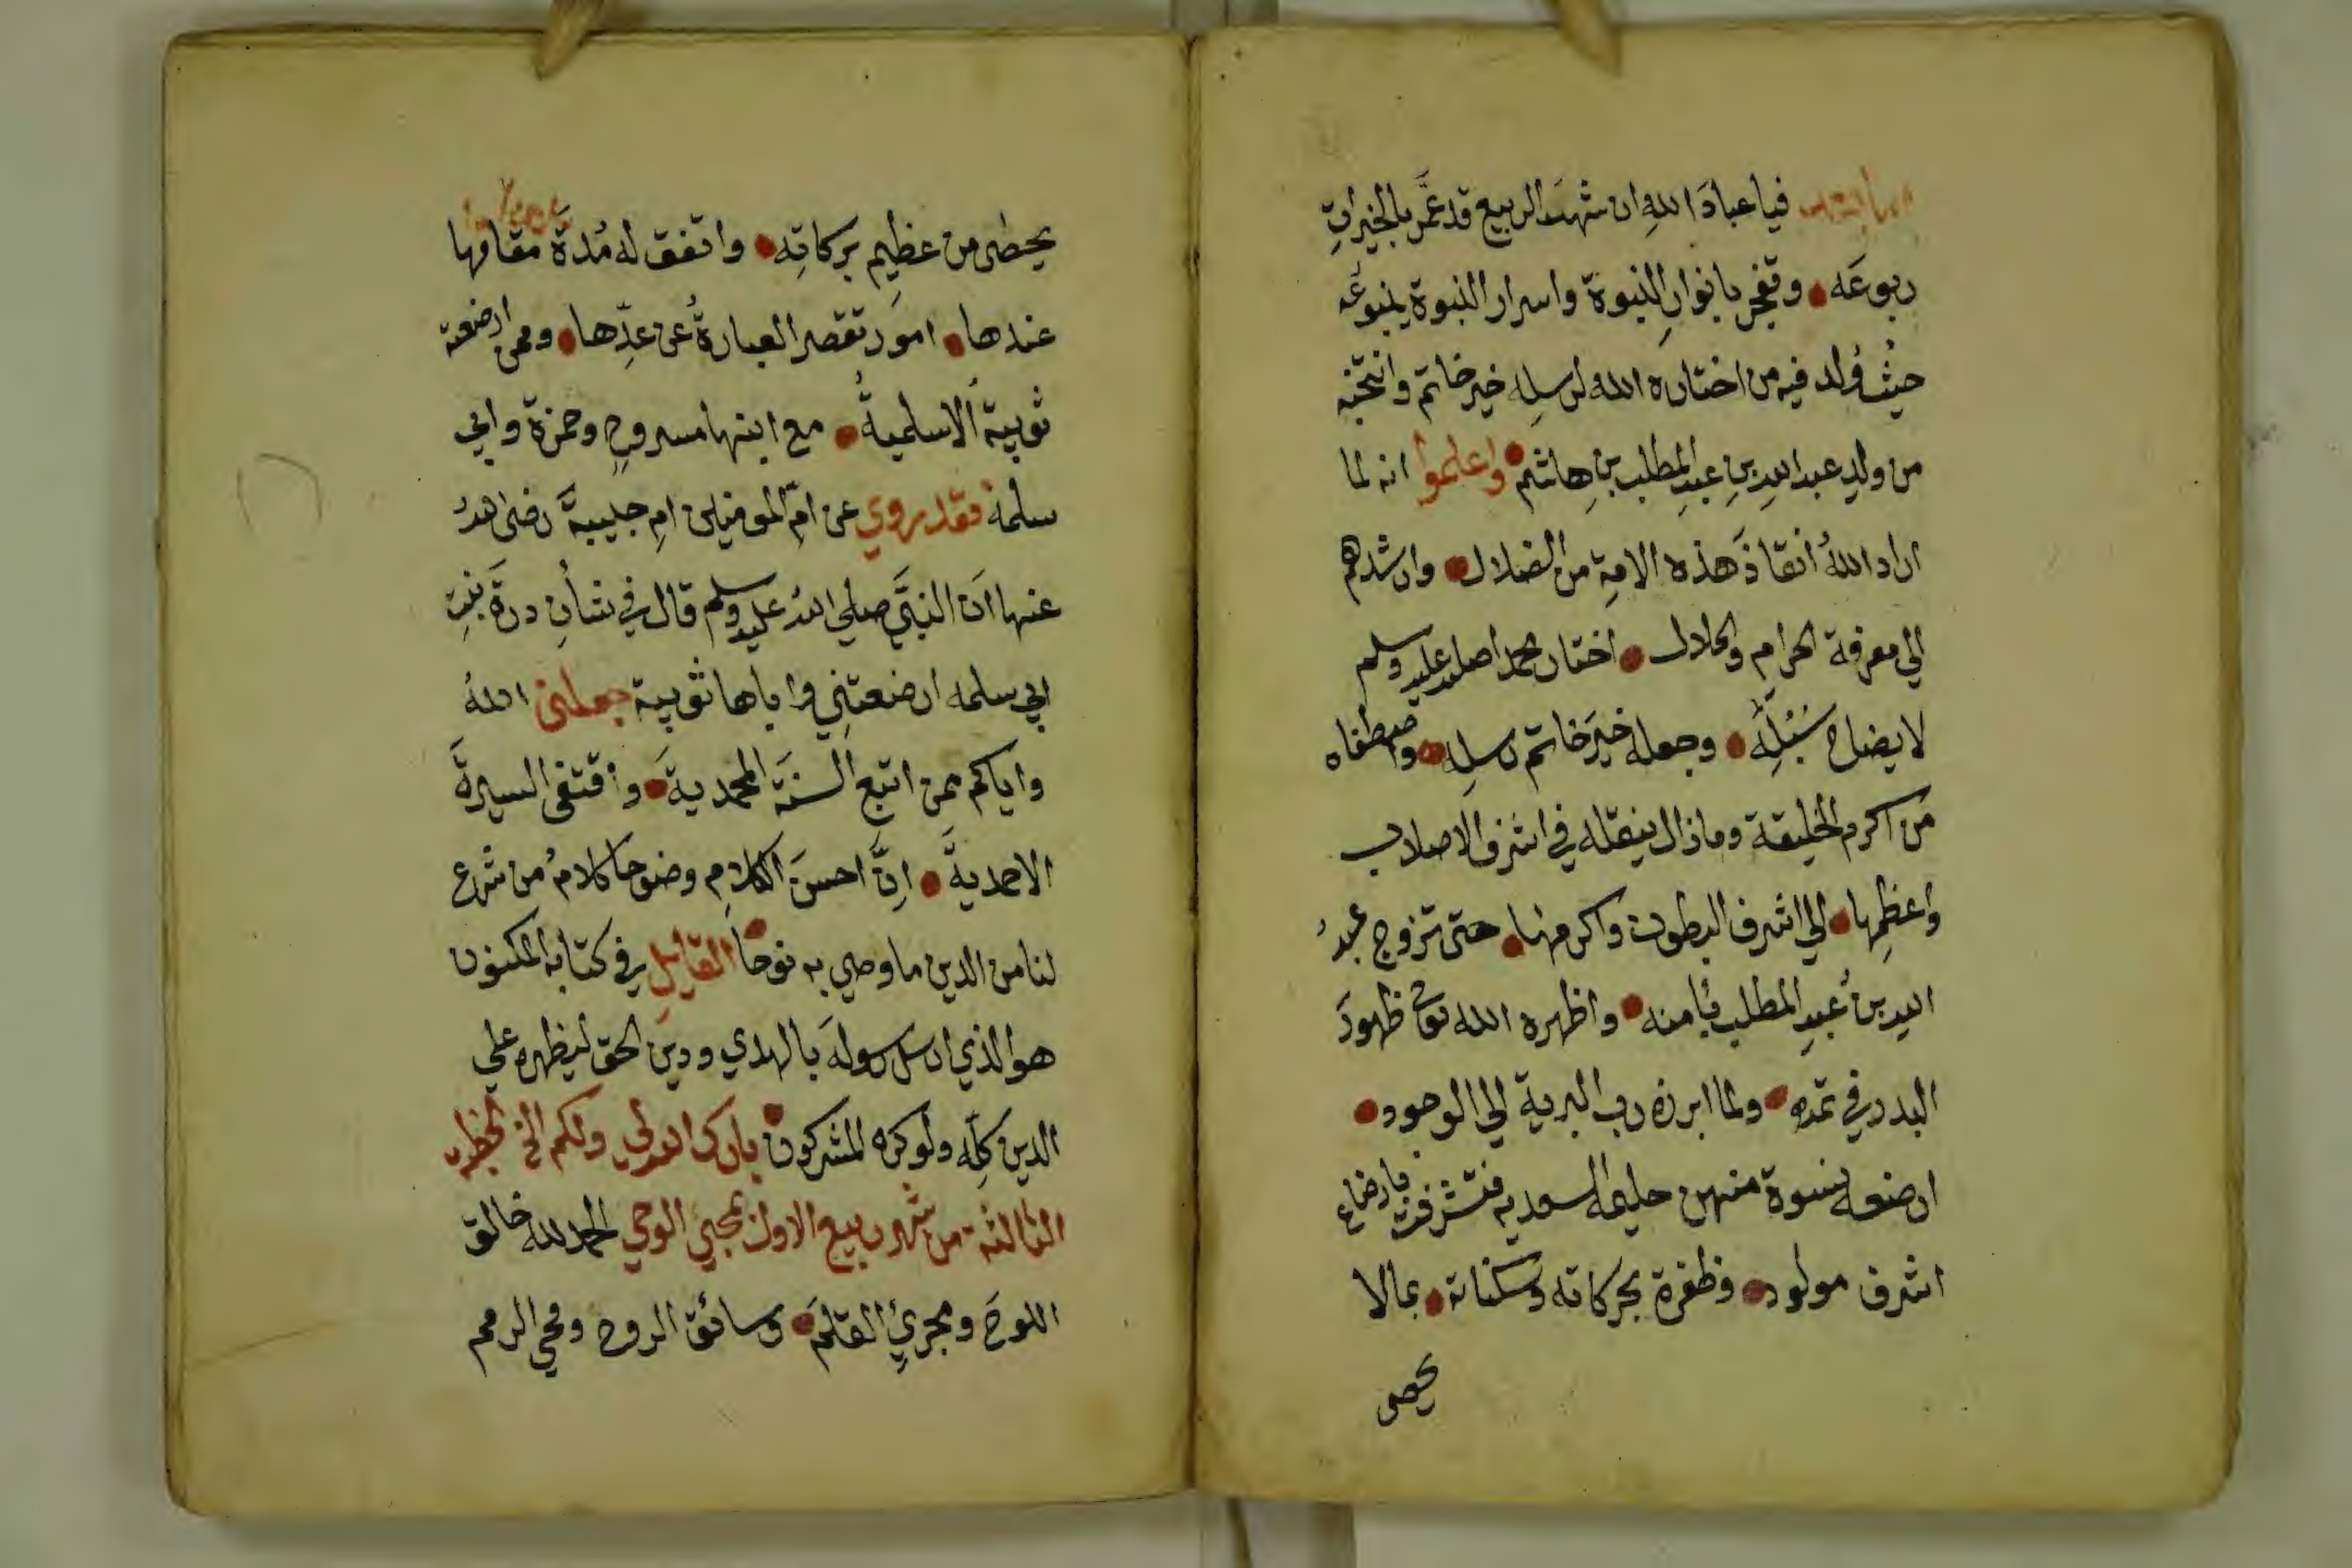 اما بعد فيا عبادَ اللهِ ان شهرَ الربيع قد عمَّر بالخيراتِ
ربوعَه • وتفجر بانوارِ النبوة واسرار النبوة ينبوعُه
حيثُ وُلد فيه من اختاره الله لرسلِه خير خاتم وانتخبه
من ولدِ عبد اللهِ بنِ عبدِ المطلب بنِ هاشم • واعلموا انه لما
اراد اللهُ انقاذَ هذه الامةِ من الضلال • وارشدهم
الي معرفة الحرام والحلال • اختار محمدا صلي الله عليه وسلم
لايضاح سُبُلِه • وجعله خيرَ خاتم رسلِه • واصطفاه
من اكرم الخليقة وما زال ينقله في اشرف الاصلاب
واعظمِها • الي اشرف البطون واكرمها • حتى تزوج عبدُ
الله بنُ عبدِ المطلب بآمنه • واظهره الله ظهورَ
البدر في تمه • ولما ابرزه رب البرية الي الوجود •
ارضعه نسوة منهن حليمة السعديه فتشرفت بارضاع
اشرف مولود • وظفرة بحركاته وسكناته • بمالا
يحصى
يحصى من عظيمِ بركاتِه • واتفق له مُدةَ مقامها
عندها • امور تقصر العبارةُ عن عدِّها • وممن ارضعته
ثويبةُ الاسلميةُ • مع ابنها مسروحٍ وحمزة وابي
سلمة فقد روي عن امّ المومنين امِ حبيبةَ رضى اللهُ
عنها انَ النبيَّ صلي اللهُ عليه وسلم قال في شأنِ درةَ بنتِ
ابي سلمه ارضعتني واباها ثويبة جعلنى اللهُ
واياكم ممن اتبع السنةَ المحمديةَ • واقتفى السيرةَ
الاحمديةَ • اِنَّ احسنَ الكلامِ وضوحا كلامُ من شرع
لنا من الدين ما وصي به نوحا • القايلِ في كتابه المكنون
هو الذي ارسل رسولَه بالهدي ودين الحق ليظهره علي
الدين كلِّه ولو كره المشركون • بارك الله لي ولكم الخ الخطبه
الثالثة من شهر ربيع الاول بمجيئ الوحي الحمد لله خالق
اللوحَ ومجريِ القلمَ • وسائق الروح ومحي الرمم